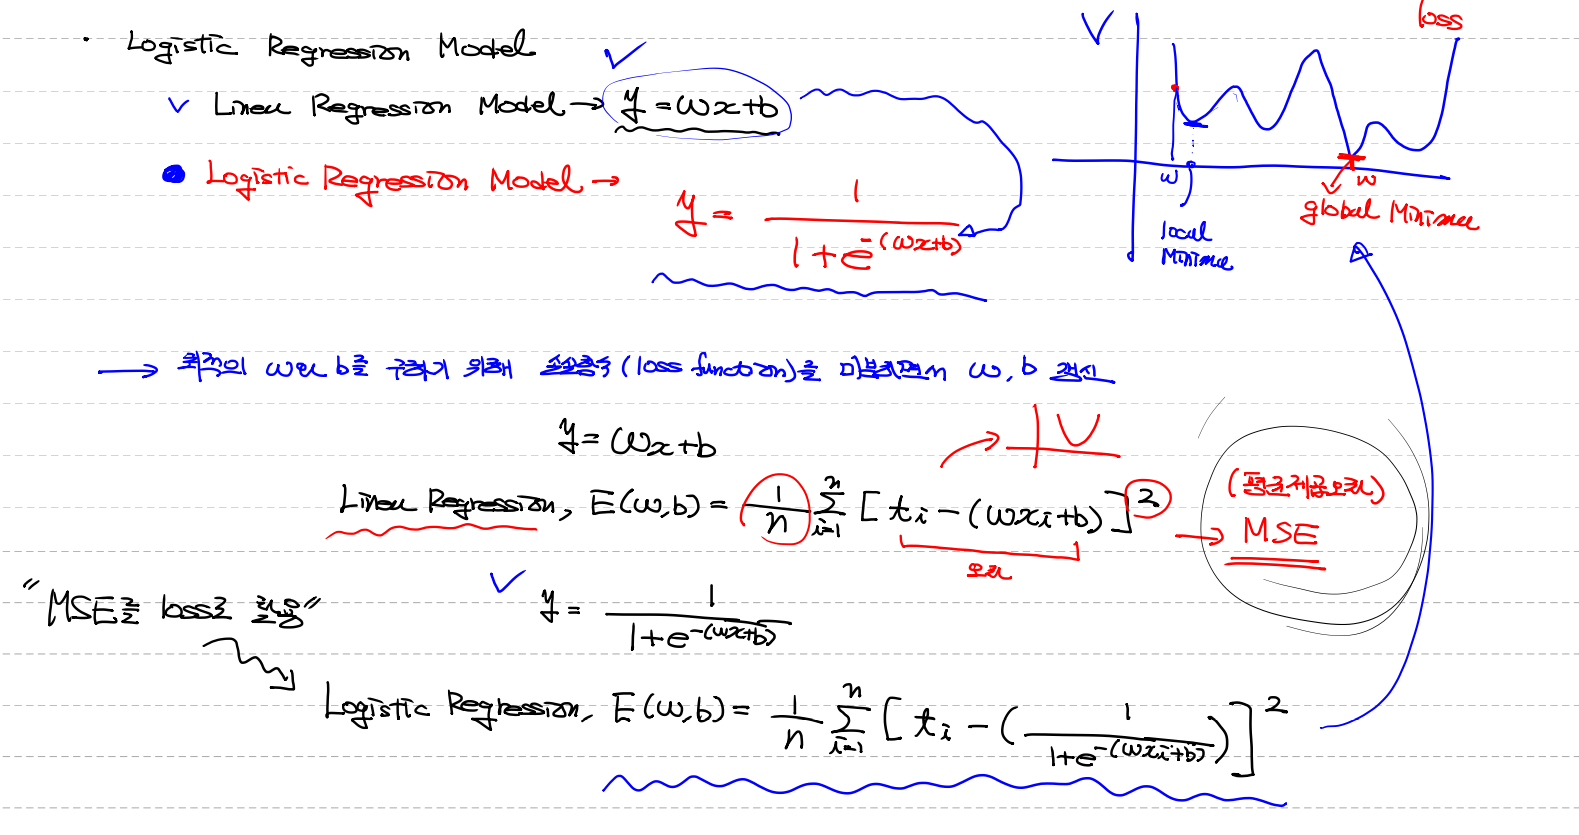 · Logistic Regression Model
✓ Linear Regression Model → y = wx+b
● Logistic Regression Model → y = 1 / (1 + e^-(wx+b))
loss
w
w
local Minimum
global Minimum
→ 최적의 w와 b를 구하기 위해 손실함수(loss function)를 미분하면서 w, b 갱신
y = wx+b
Linear Regression, E(w,b) = 1/n Σ_{i=1}^{n} [t_i - (wx_i+b)]^2 → MSE
오차
(평균제곱오차)
"MSE를 loss로 활용"
y = 1 / (1+e^-(wx+b))
Logistic Regression, E(w,b) = 1/n Σ_{i=1}^{n} [t_i - (1 / (1+e^-(wx_i+b)))]^2